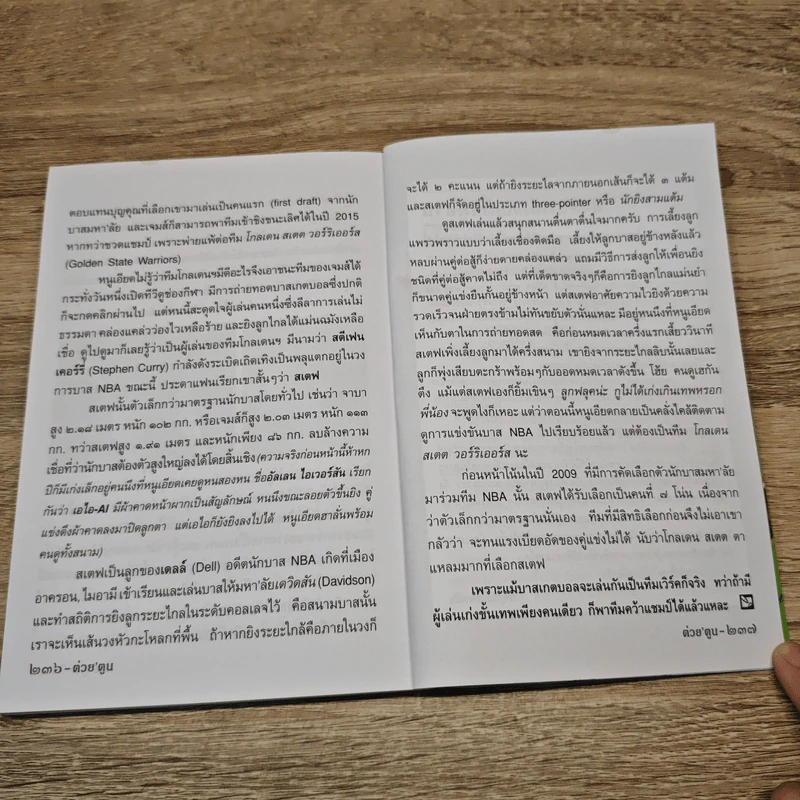 ตอบแทนบุญคุณที่เลือกเขามาเล่นเป็นคนแรก (first draft) จากนัก
บาสมหา'ลัย และเจมส์ก็สามารถพาทีมเข้าชิงชนะเลิศได้ในปี 2015
หากทว่าชวดแชมป์ เพราะพ่ายแพ้ต่อทีม โกลเดน สเตต วอร์ริเออร์ส
(Golden State Warriors)
หนูเอียดไม่รู้ว่าทีมโกลเดนฯมีดีอะไรจึงเอาชนะทีมของเจมส์ได้
กระทั่งวันหนึ่งเปิดทีวีดูช่องกีฬา มีการถ่ายทอดบาสเกตบอลซึ่งปกติ
ก็จะกดคลิกผ่านไป แต่หนนี้สะดุดใจผู้เล่นคนหนึ่งซึ่งลีลาการเล่นไม่
ธรรมดา คล่องแคล่วว่องไวเหลือร้าย และยิงลูกไกลได้แม่นฉมังเหลือ
เชื่อ ดูไปดูมาก็เลยรู้ว่าเป็นผู้เล่นของทีมโกลเดนฯ มีนามว่า สตีเฟน
เคอร์รี่ (Stephen Curry) กำลังดังระเบิดเถิดเทิงเป็นพลุแตกอยู่ในวง
การบาส NBA ขณะนี้ ประดาแฟนเรียกเขาสั้นๆว่า สเตฟ
สเตฟนั้นตัวเล็กกว่ามาตรฐานนักบาสโดยทั่วไป เช่นว่า จาบา
สูง ๒.๑๘ เมตร หนัก ๑๐๒ กก. หรือเจมส์ก็สูง ๒.๐๓ เมตร หนัก ๑๑๓
กก. ทว่าสเตฟสูง ๑.๙๑ เมตร และหนักเพียง ๘๖ กก. ลบล้างความ
เชื่อที่ว่านักบาสต้องตัวสูงใหญ่ลงได้โดยสิ้นเชิง (ความจริงก่อนหน้านี้ห้าหก
ปีก็มีเก่งเล็กอยู่คนนึงที่หนูเอียดเคยดูหนสองหน ชื่ออัลเลน ไอเวอร์สัน เรียก
กันว่า เอไอ-AI มีผ้าคาดหน้าผากเป็นสัญลักษณ์ หนนึงขณะลอยตัวขึ้นยิง คู่
แข่งดึงผ้าคาดลงมาปิดลูกตา แต่เอไอก็ยังยิงลงไปได้ หนูเอียดฮาลั่นพร้อม
คนดูทั้งสนาม)
สเตฟเป็นลูกของเดลล์ (Dell) อดีตนักบาส NBA เกิดที่เมือง
อาครอน, ไมอามี เข้าเรียนและเล่นบาสให้มหา'ลัยเดวิดสัน (Davidson)
และทำสถิติการยิงลูกระยะไกลในระดับคอลเลจไว้ คือสนามบาสนั้น
เราจะเห็นเส้นวงหัวกะโหลกที่พื้น ถ้าหากยิงระยะใกล้คือภายในวงก็
๒๓๖ – ต่วย'ตูน
จะได้ ๒ คะแนน แต่ถ้ายิงระยะไลจากภายนอกเส้นก็จะได้ ๓ แต้ม
และสเตฟก็จัดอยู่ในประเภท three-pointer หรือ นักยิงสามแต้ม
ดูสเตฟเล่นแล้วสนุกสนานตื่นตาตื่นใจมากครับ การเลี้ยงลูก
แพรวพราวแบบว่าเลี้ยงเชื่องติดมือ เลี้ยงให้ลูกบาสอยู่ข้างหลังแล้ว
หลบผ่านคู่ต่อสู้ก็ง่ายดายคล่องแคล่ว แถมมีวิธีการส่งลูกให้เพื่อนยิง
ชนิดที่คู่ต่อสู้คาดไม่ถึง แต่ที่เด็ดขาดจริงๆก็คือการยิงลูกไกลแม่นยำ
ก็ขนาดคู่แข่งยืนกั้นอยู่ข้างหน้า แต่สเตฟอาศัยความไวยิงด้วยความ
รวดเร็วจนฝ่ายตรงข้ามไม่ทันขยับตัวนั่นแหละ มีอยู่หนนึงที่หนูเอียด
เห็นกับตาในการถ่ายทอดสด คือก่อนหมดเวลาครึ่งแรกเสี้ยววินาที
สเตฟเพิ่งเลี้ยงลูกมาได้ครึ่งสนาม เขายิงจากระยะไกลลิบนั้นเลยและ
ลูกก็พุ่งเสียบตะกร้าพร้อมๆกับออดหมดเวลาดังขึ้น โฮ้ย คนดูเฮกัน
ตึง แม้แต่สเตฟเองก็ยิ้มเขินๆ ลูกฟลุคน่ะ กูไม่ได้เก่งเกินเทพหรอก
พี่น้อง จะพูดไงก็เหอะ แต่ว่าตอนนี้หนูเอียดกลายเป็นคลั่งไคล้ติดตาม
ดูการแข่งขันบาส NBA ไปเรียบร้อยแล้ว แต่ต้องเป็นทีม โกลเดน
สเตต วอร์ริเออร์ส นะ
ก่อนหน้าโน้นในปี 2009 ที่มีการคัดเลือกตัวนักบาสมหา'ลัย
มาร่วมทีม NBA นั้น สเตฟได้รับเลือกเป็นคนที่ ๗ โน่น เนื่องจาก
ว่าตัวเล็กกว่ามาตรฐานนั่นเอง ทีมที่มีสิทธิเลือกก่อนจึงไม่เอาเขา
กลัวว่า จะทนแรงเบียดอัดของคู่แข่งไม่ได้ นับว่าโกลเดน สเตต ตา
แหลมมากที่เลือกสเตฟ
เพราะแม้บาสเกตบอลจะเล่นกันเป็นทีมเวิร์คก็จริง ทว่าถ้ามี
ผู้เล่นเก่งขั้นเทพเพียงคนเดียว ก็พาทีมคว้าแชมป์ได้แล้วแหละ
ต่วย'ตูน – ๒๓๗